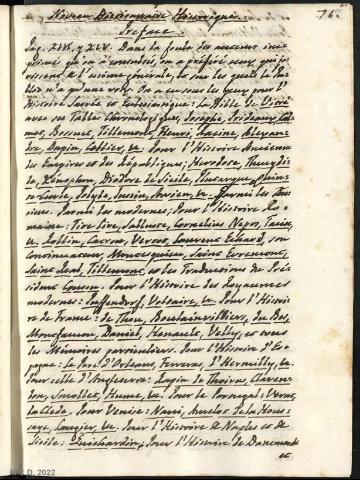 Nouveau Dictionnaire Historique. 75.
Preface.
Pag. XLIV, y XLV. Dans la foule des auteurs im-
primés qu'on a consultés, on a préféré ceux qui jou-
issent de l'estime générale, & sur les quels le Pu-
blic n'a qu'une voix. On a eu sous les yeux pour l'
Histoire Sacrée et Ecclesiastique: La Bible de Vitré
avec ses Tables Chronologiques, Joseph, Prideaux, Cal-
met, Bossuet, Tillemont, Fleuri, Racine, Alexan-
dre, Dupin, Cellier, &. Pour l'Histoire Ancienne
des Empires et des Républiques, Herodote, Thucydi-
de, Xenophon, Diodore de Sicile, Plutarque, Quin-
te-Curce, Polybe, Justin, Arrien, &. Parmi les An-
ciens. Parmi les modernes, Pour l'Histoire Ro-
maine: Tite Live, Salluste, Cornelius Nepos, Tacite,
&. Rollin, Crevier, Vertot, Laurent Echard, son
Continuateur, Montesquieu, Saint Evremont,
Saint Real, Tillemont, et les Traductions du Pré-
sident Cousin. Pour l'Histoire des Royaumes
modernes: Puffendorf, Voltaire, &. Pour l'Histoi-
re de France: de Thou, Boulainvilliers, du Bos,
Monfaucon, Daniel, Henault, Velly, et tous
les Mémoires particuliers. Pour l'Histoire d'Es-
pagne: le Pere d'Orleans, Ferreras, d'Hermilly, &.
Pour celle d'Angleterre: Rapin de Thoiras, Claren-
don, Smollet, Hume, &. Pour le Portugal: Vertot,
la Clede. Pour Venise: Nani, Amelot de la Hous-
saye, Laugier, &. Pour l'Histoire de Naples et de
Sicile: Guichardin; Pour l'Histoire de Danemark
D, 2022